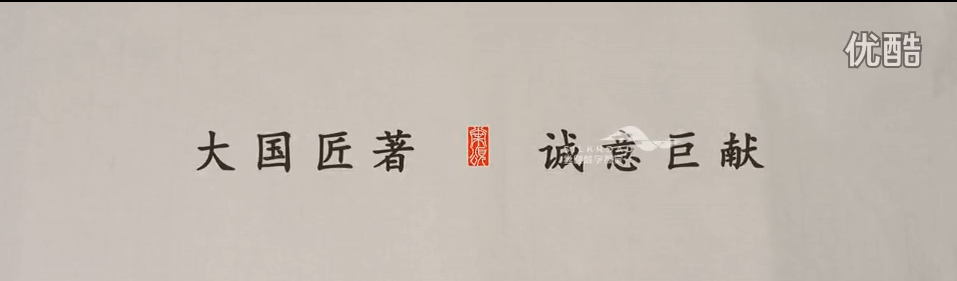 优酷
大国匠著 诚意巨献